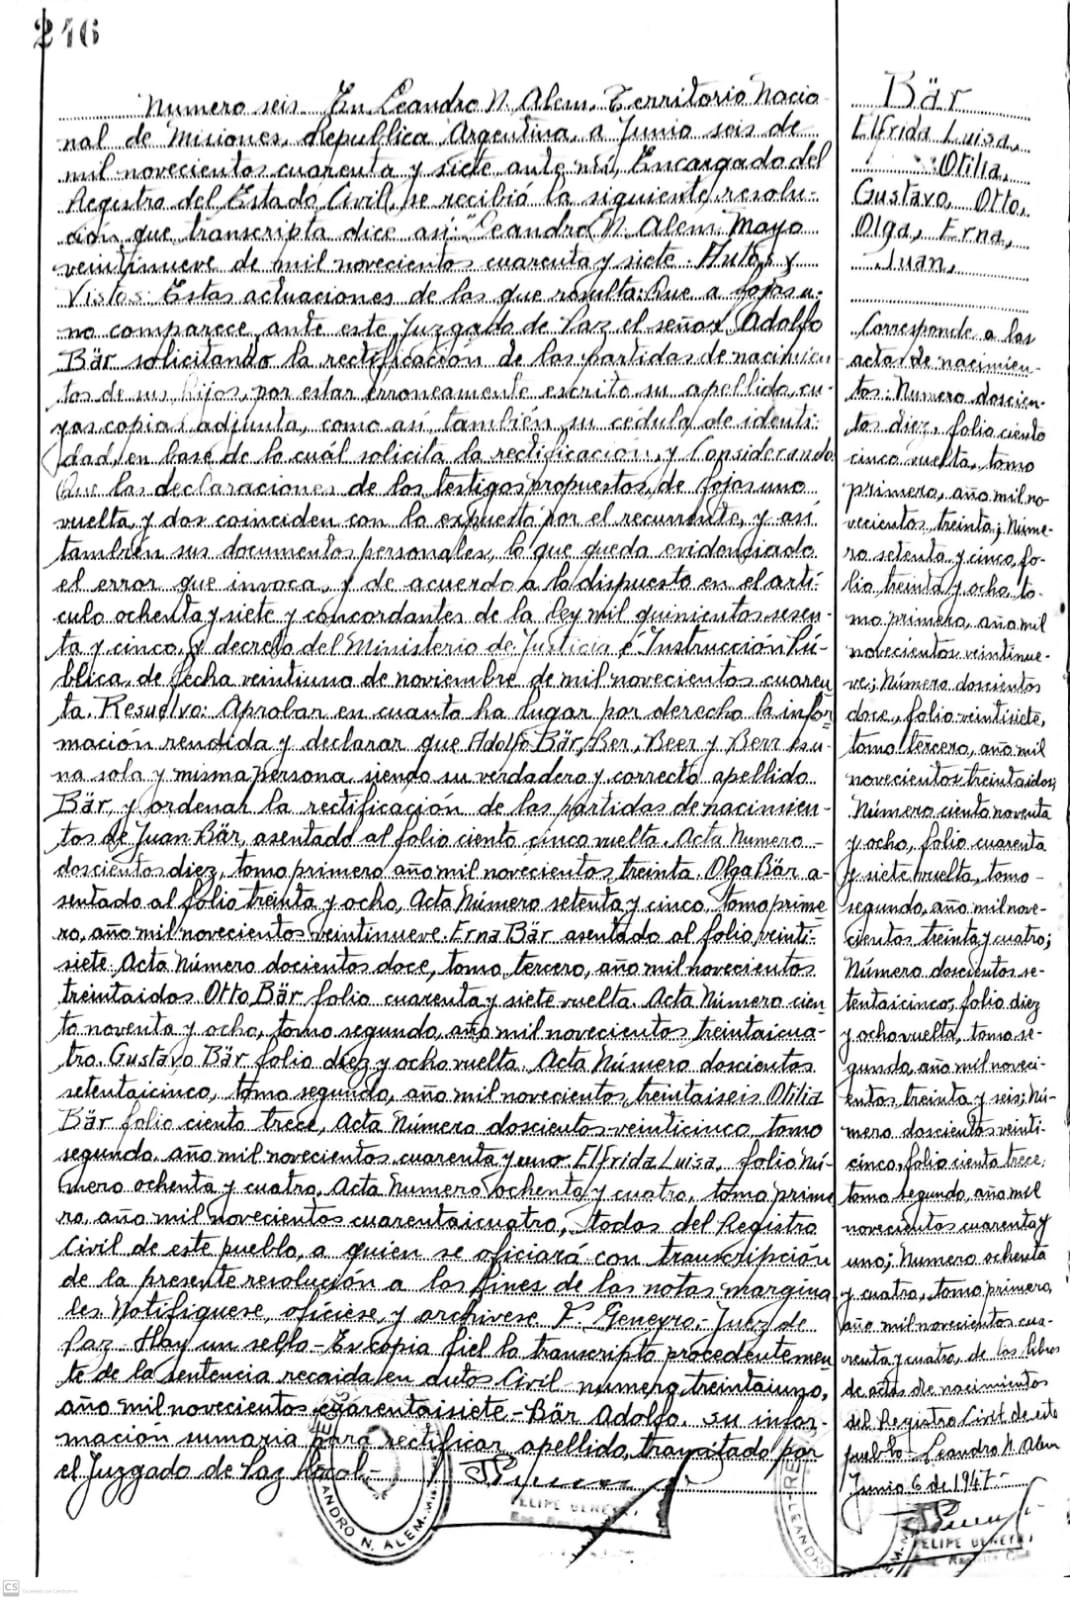 246
Numero seis. En Leandro N. Alem, Territorio Nacio-
nal de Misiones, Republica Argentina, a Junio seis de
mil novecientos cuarenta y siete ante mí, Encargado del
Registro del Estado Civil, se recibió la siguiente resolu-
ción que transcripta dice así: "Leandro N. Alem, Mayo
veintinueve de mil novecientos cuarenta y siete. Autos y
Vistos: Estas actuaciones de las que resulta: Que a fojas u-
no comparece ante este Juzgado de Paz el señor Adolfo
Bär solicitando la rectificación de las partidas de nacimien-
tos de sus hijos, por estar erroneamente escrito su apellido, cu-
yas copias adjunta, como así también su cédula de identi-
dad, en base de lo cuál solicita la rectificación, y Considerando:
Que las declaraciones de los testigos propuestos, de fojas uno
vuelta y dos coinciden con lo expuesto por el recurrente, y así
también sus documentos personales, lo que queda evidenciado
el error que invoca, y de acuerdo a lo dispuesto en el artí-
culo ochenta y siete y concordantes de la ley mil quinientos sesen-
ta y cinco, y decreto del Ministerio de Justicia é Instrucción Pú-
blica, de fecha veintiuno de noviembre de mil novecientos cuaren-
ta. Resuelvo: Aprobar en cuanto ha lugar por derecho la infor-
mación rendida y declarar que Adolfo Bär, Ber, Beer y Berr es u-
na sola y misma persona siendo su verdadero y correcto apellido
Bär, y ordenar la rectificación de las partidas de nacimien-
tos de Juan Bär, asentado al folio ciento cinco vuelta. Acta Numero
doscientos diez, tomo primero año mil novecientos treinta. Olga Bär a-
sentado al folio treinta y ocho, Acta Número setenta y cinco, tomo prime-
ro, año mil novecientos veintinueve. Erna Bär asentado al folio veinti-
siete. Acta Número docientos doce, tomo tercero, año mil novecientos
treintaidos. Otto Bär folio cuarenta y siete vuelta. Acta Número cien-
to noventa y ocho, tomo segundo, año mil novecientos treintaicua-
tro. Gustavo Bär folio diez y ocho vuelta. Acta Número doscientos
setentaicinco, tomo segundo, año mil novecientos treintaiseis. Otilia
Bär folio ciento trece, Acta Número doscientos veinticinco, tomo
segundo, año mil novecientos cuarenta y uno. Elfrida Luisa, folio Nú-
mero ochenta y cuatro, Acta Numero ochenta y cuatro, tomo prime-
ro, año mil novecientos cuarentaicuatro, todas del Registro
Civil de este pueblo, a quien se oficiará con transcripción
de la presente resolución a los fines de las notas margina-
les. Notifiquese, oficiese, y archivese. F. Geneyro.- Juez de
Paz.- Hay un sello.- Es copia fiel la transcripta procedentemen-
te de la sentencia recaida en autos Civil numero treintaiuno,
año mil novecientos cuarentaisiete.- Bär Adolfo, su infor-
mación sumaria para rectificar apellido, tramitado por
el Juzgado de Paz local.-
LEANDRO N. ALEM
FELIPE GENEYRO
Bär
Elfrida Luisa,
Otilia,
Gustavo, Otto,
Olga, Erna,
Juan,
Corresponde a las
actas de nacimien-
tos: Numero doscien-
tos diez, folio ciento
cinco vuelta, tomo
primero, año mil no-
vecientos treinta; Núme-
ro setenta y cinco, fo-
lio treinta y ocho, to-
mo primero, año mil
novecientos veintinue-
ve; Número doscientos
doce, folio veintisiete,
tomo tercero, año mil
novecientos treintaidos;
Número ciento noventa
y ocho, folio cuarenta
y siete vuelta, tomo
segundo, año mil nove-
cientos treinta y cuatro;
Número doscientos se-
tentaicinco, folio diez
y ocho vuelta, tomo se-
gundo, año mil noveci-
entos treinta y seis; Nú-
mero doscientos veinti-
cinco, folio ciento trece,
tomo segundo, año mil
novecientos cuarenta y
uno; Numero ochenta
y cuatro, tomo primero,
año mil novecientos cua-
renta y cuatro, de los libros
de actas de nacimientos
del Registro Civil de este
pueblo.- Leandro N. Alem
Junio 6 de 1947.-
FELIPE GENEYRO
CS